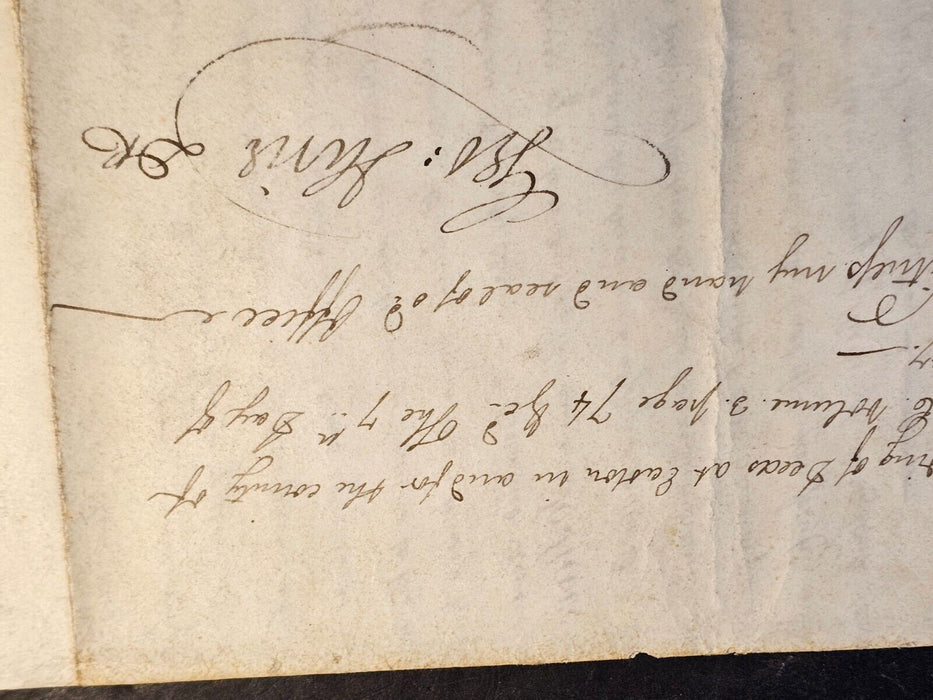 ring of Deeds at Easton in and for the county of
E. Volume. 3. page 74 &c? The 7th Day of
7. —
itness my hand and seal of sd Office
Geo: